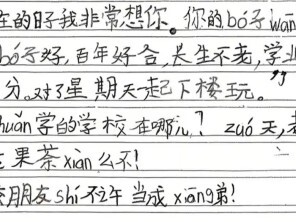 在的日子我非常想你。你的bó子wān
bó子好,百年好合,长生不老,学业
分。对了星期天一起下楼玩。”
huán学的学校在哪儿?zuó天,
果茶xiàn么不!
朋友shí不午当成xiōng弟!